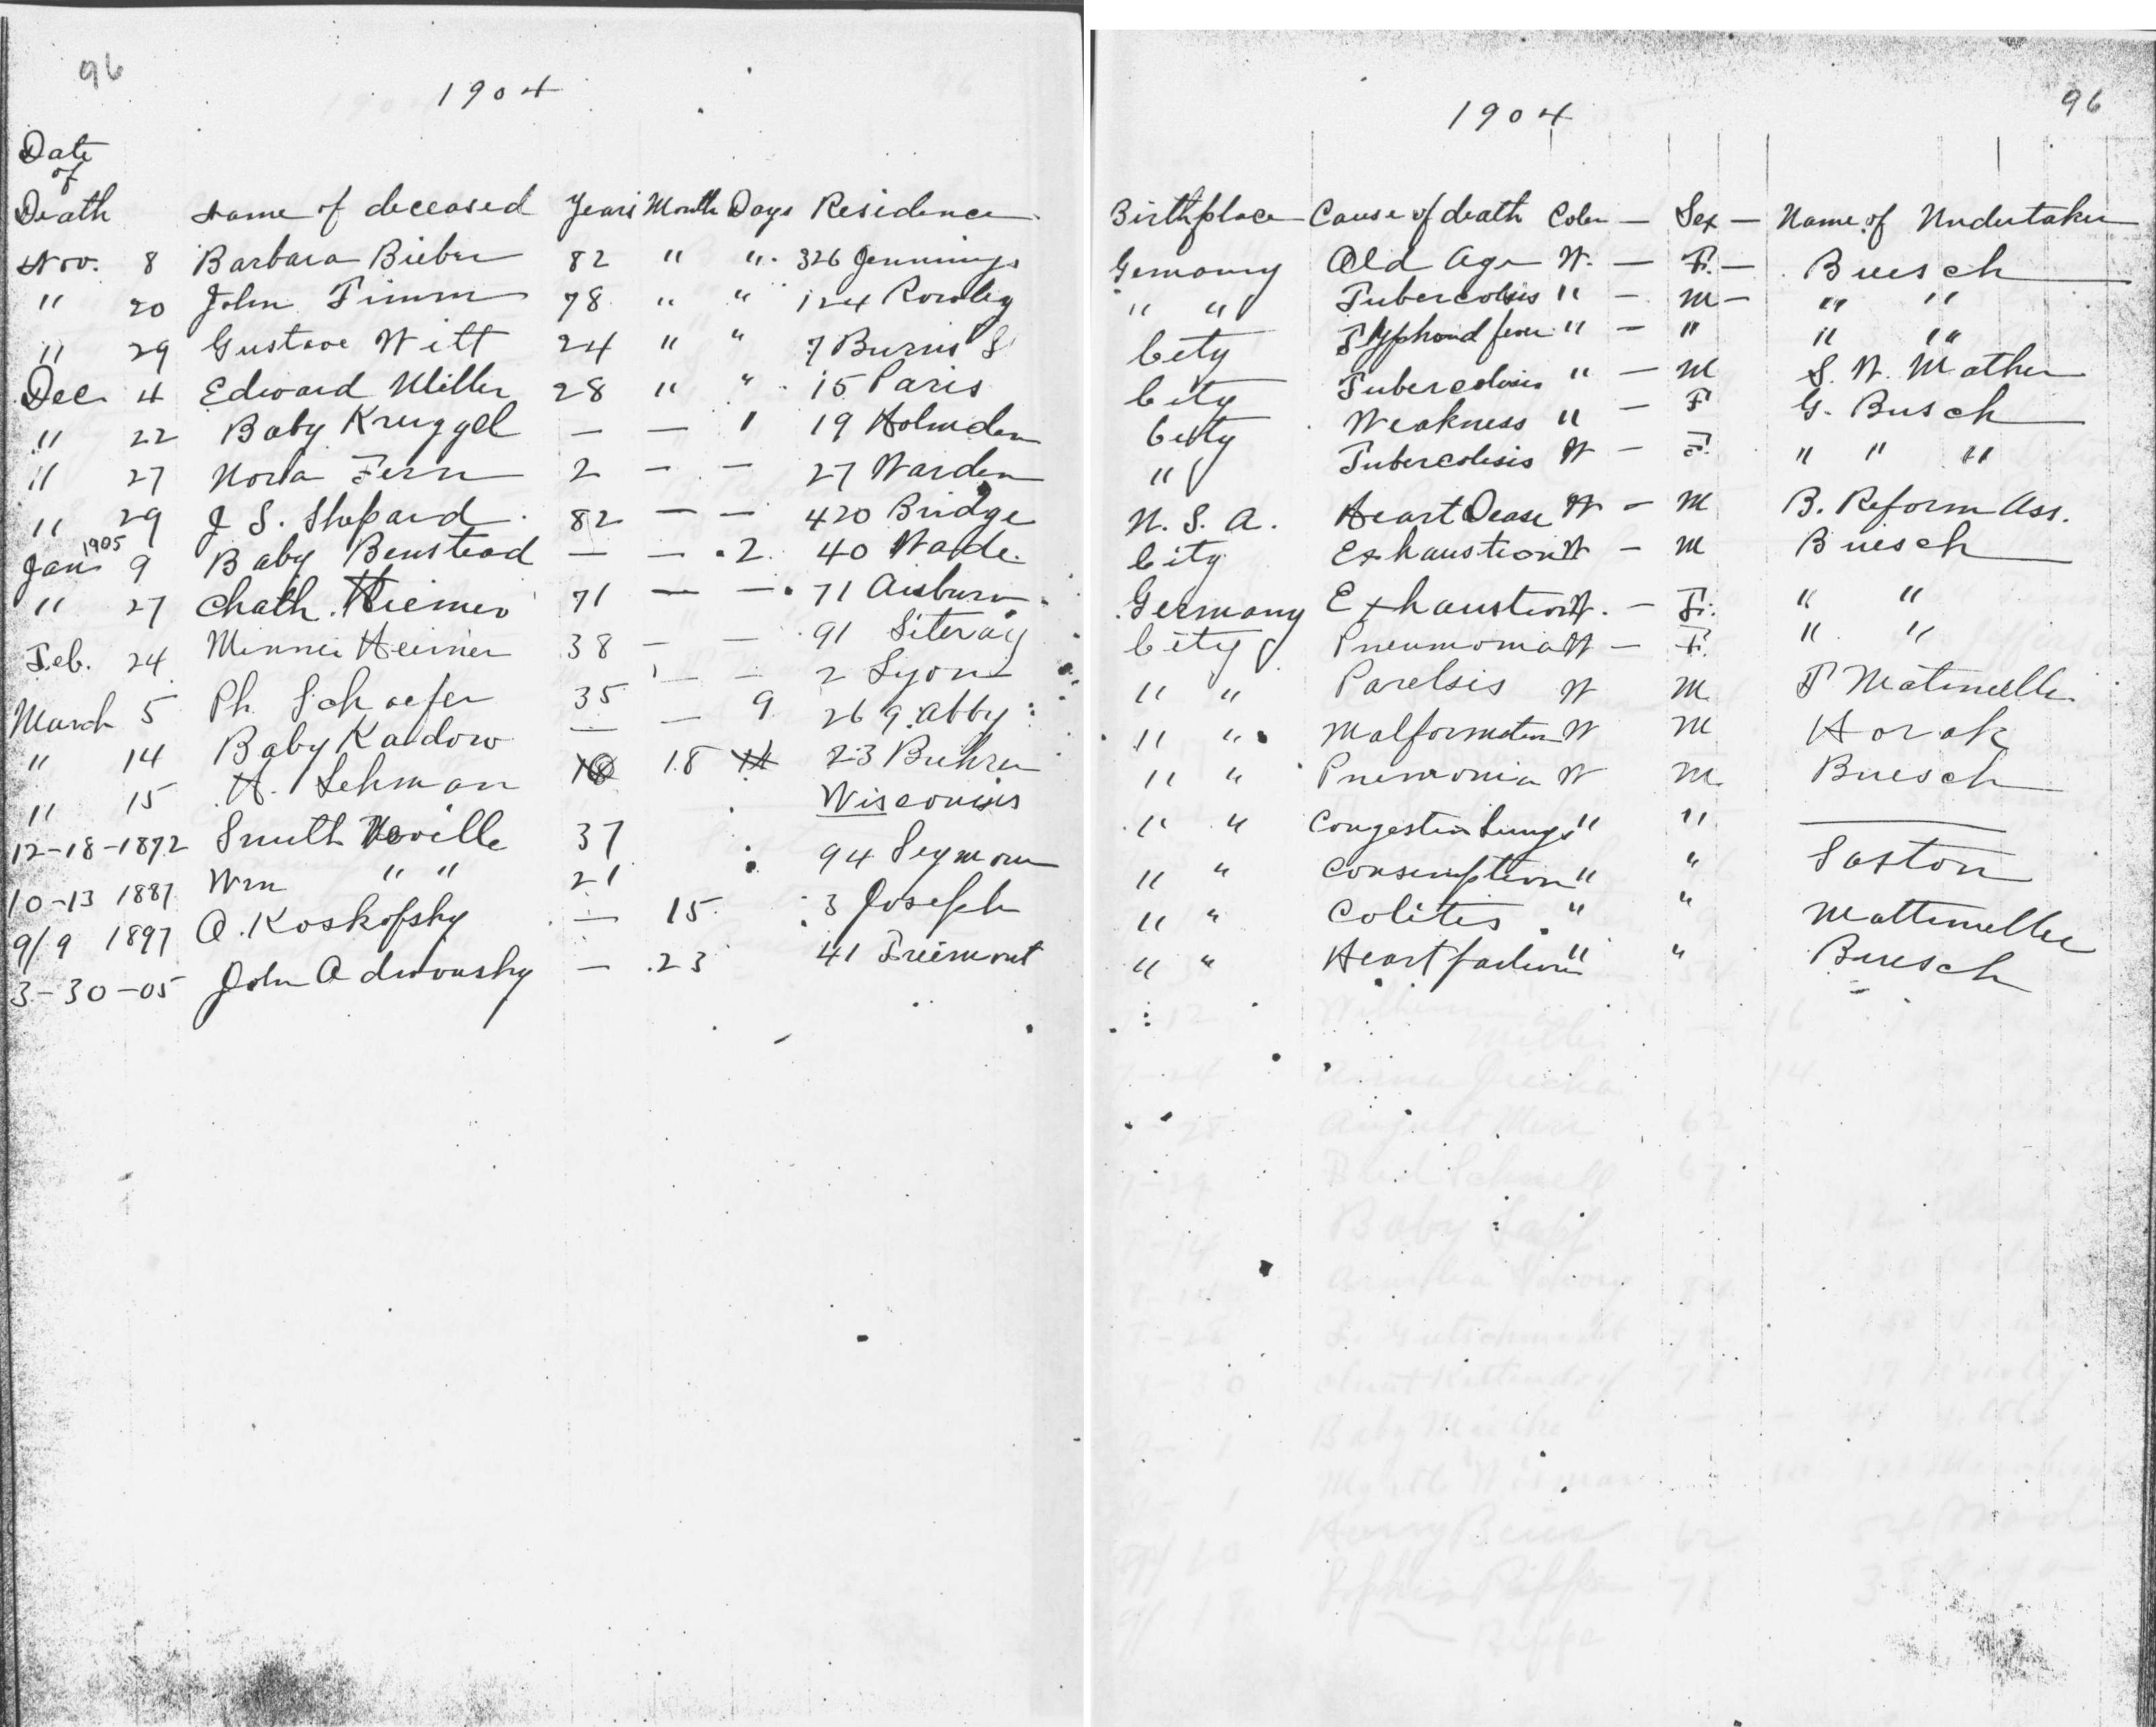 96
1904
Date
of
Death Name of deceased Years Month Days Residence
Nov. 8 Barbara Bieber 82 " " 326 Jennings
" 20 John Timm 78 " " 124 Rowley
" 29 Gustave Witt 24 " " 7 Burns S
Dec 4 Edward Miller 28 " " 15 Paris
" 22 Baby Kruggel — — 1 19 Holmden
" 27 Norla Fern 2 — — 27 Warden
" 29 J S. Shepard 82 — — 420 Bridge
1905
Jan 9 Baby Benstead — — 2 40 Wade
" 27 Chath. Hiemer 71 — — 71 Aisburn
Feb. 24 Minnie Heiner 38 — — 91 Siteray
March 5 Ph Schaefer 35 — — 2 Lyon
" 14 Baby Kaldow — — 9 269 Abby
" 15 H. Lehman 18 23 Buhrer
Wisconsis
12-18-1872 Smith Neville 37
10-13 1887 Wm " " 21 94 Seymour
9/9 1897 A. Koskofsky — 15 3 Joseph
3-30-05 John Adwonsky — 23 41 Freimont
96
1904
Birthplace Cause of death Color — Sex — Name of Undertaker
Gemany Old Age W. — F. — Buesch
" " Tubercolsis " — M — " "
City Typhoid fever " — " " "
City Tubercolosis " — M S. W. Mather
City Weakness " — F G. Busch
" Tubercolisis W — F. " " "
U. S. A. Heart Dease W — M B. Reform Ass.
City Exhaustion W — M Buesch
Germany Exhaustion W. — F. " "
City Pneumonia W — F. " "
" " Parelsis W M F Matmuller
" " Malformation W M Horak
" " Pnemonia W M. Buesch
" " Congestion Lungs " " —
" " Consumption " " Saxton
" " Colites " " Mattmuller
" " Heart failure " " Buesch